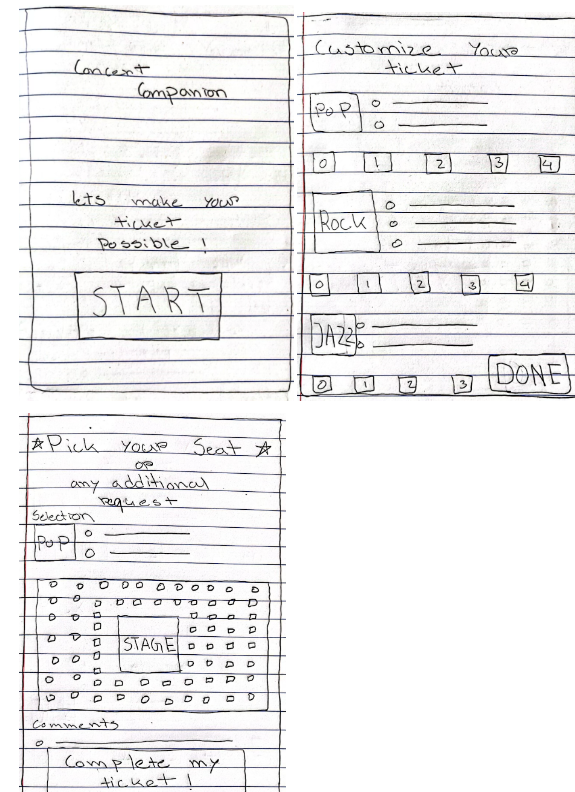 Concert
Companion
lets make your
ticket
possible !
START
Customize Your
ticket
POP
0 1 2 3 4
ROCK
0 1 2 3 4
JAZZ
0 1 2 3
DONE
Pick your Seat
or
any additional
request
Selection
POP
STAGE
Comments
Complete my
ticket !